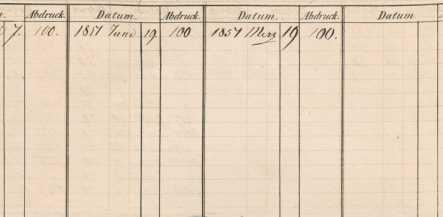 Abdruck. Datum. Abdruck. Datum. Abdruck. Datum
7. 100. 1851 Juni 19. 100 1851 19 100.